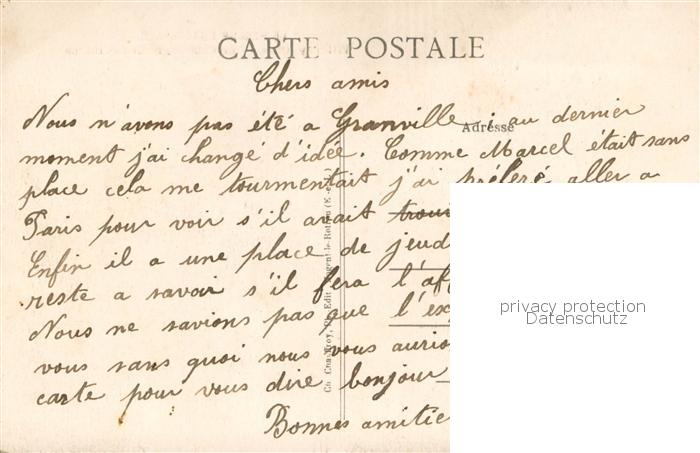 CARTE POSTALE
Chers amis
Nous n'avons pas été a Granville i au dernier
Adresse
moment j'ai changé d'idée. Comme Marcel était sans
place cela me tourmentait j'ai préféré aller a
Paris pour voir s'il avait
Enfin il a une place de jeud
reste a savoir s'il fera l'af
Nous ne savions pas que l'ex
vous sans quoi nous vous aurio
carte pour vous dire bonjour
Bonnes amitié
privacy protection
Datenschutz